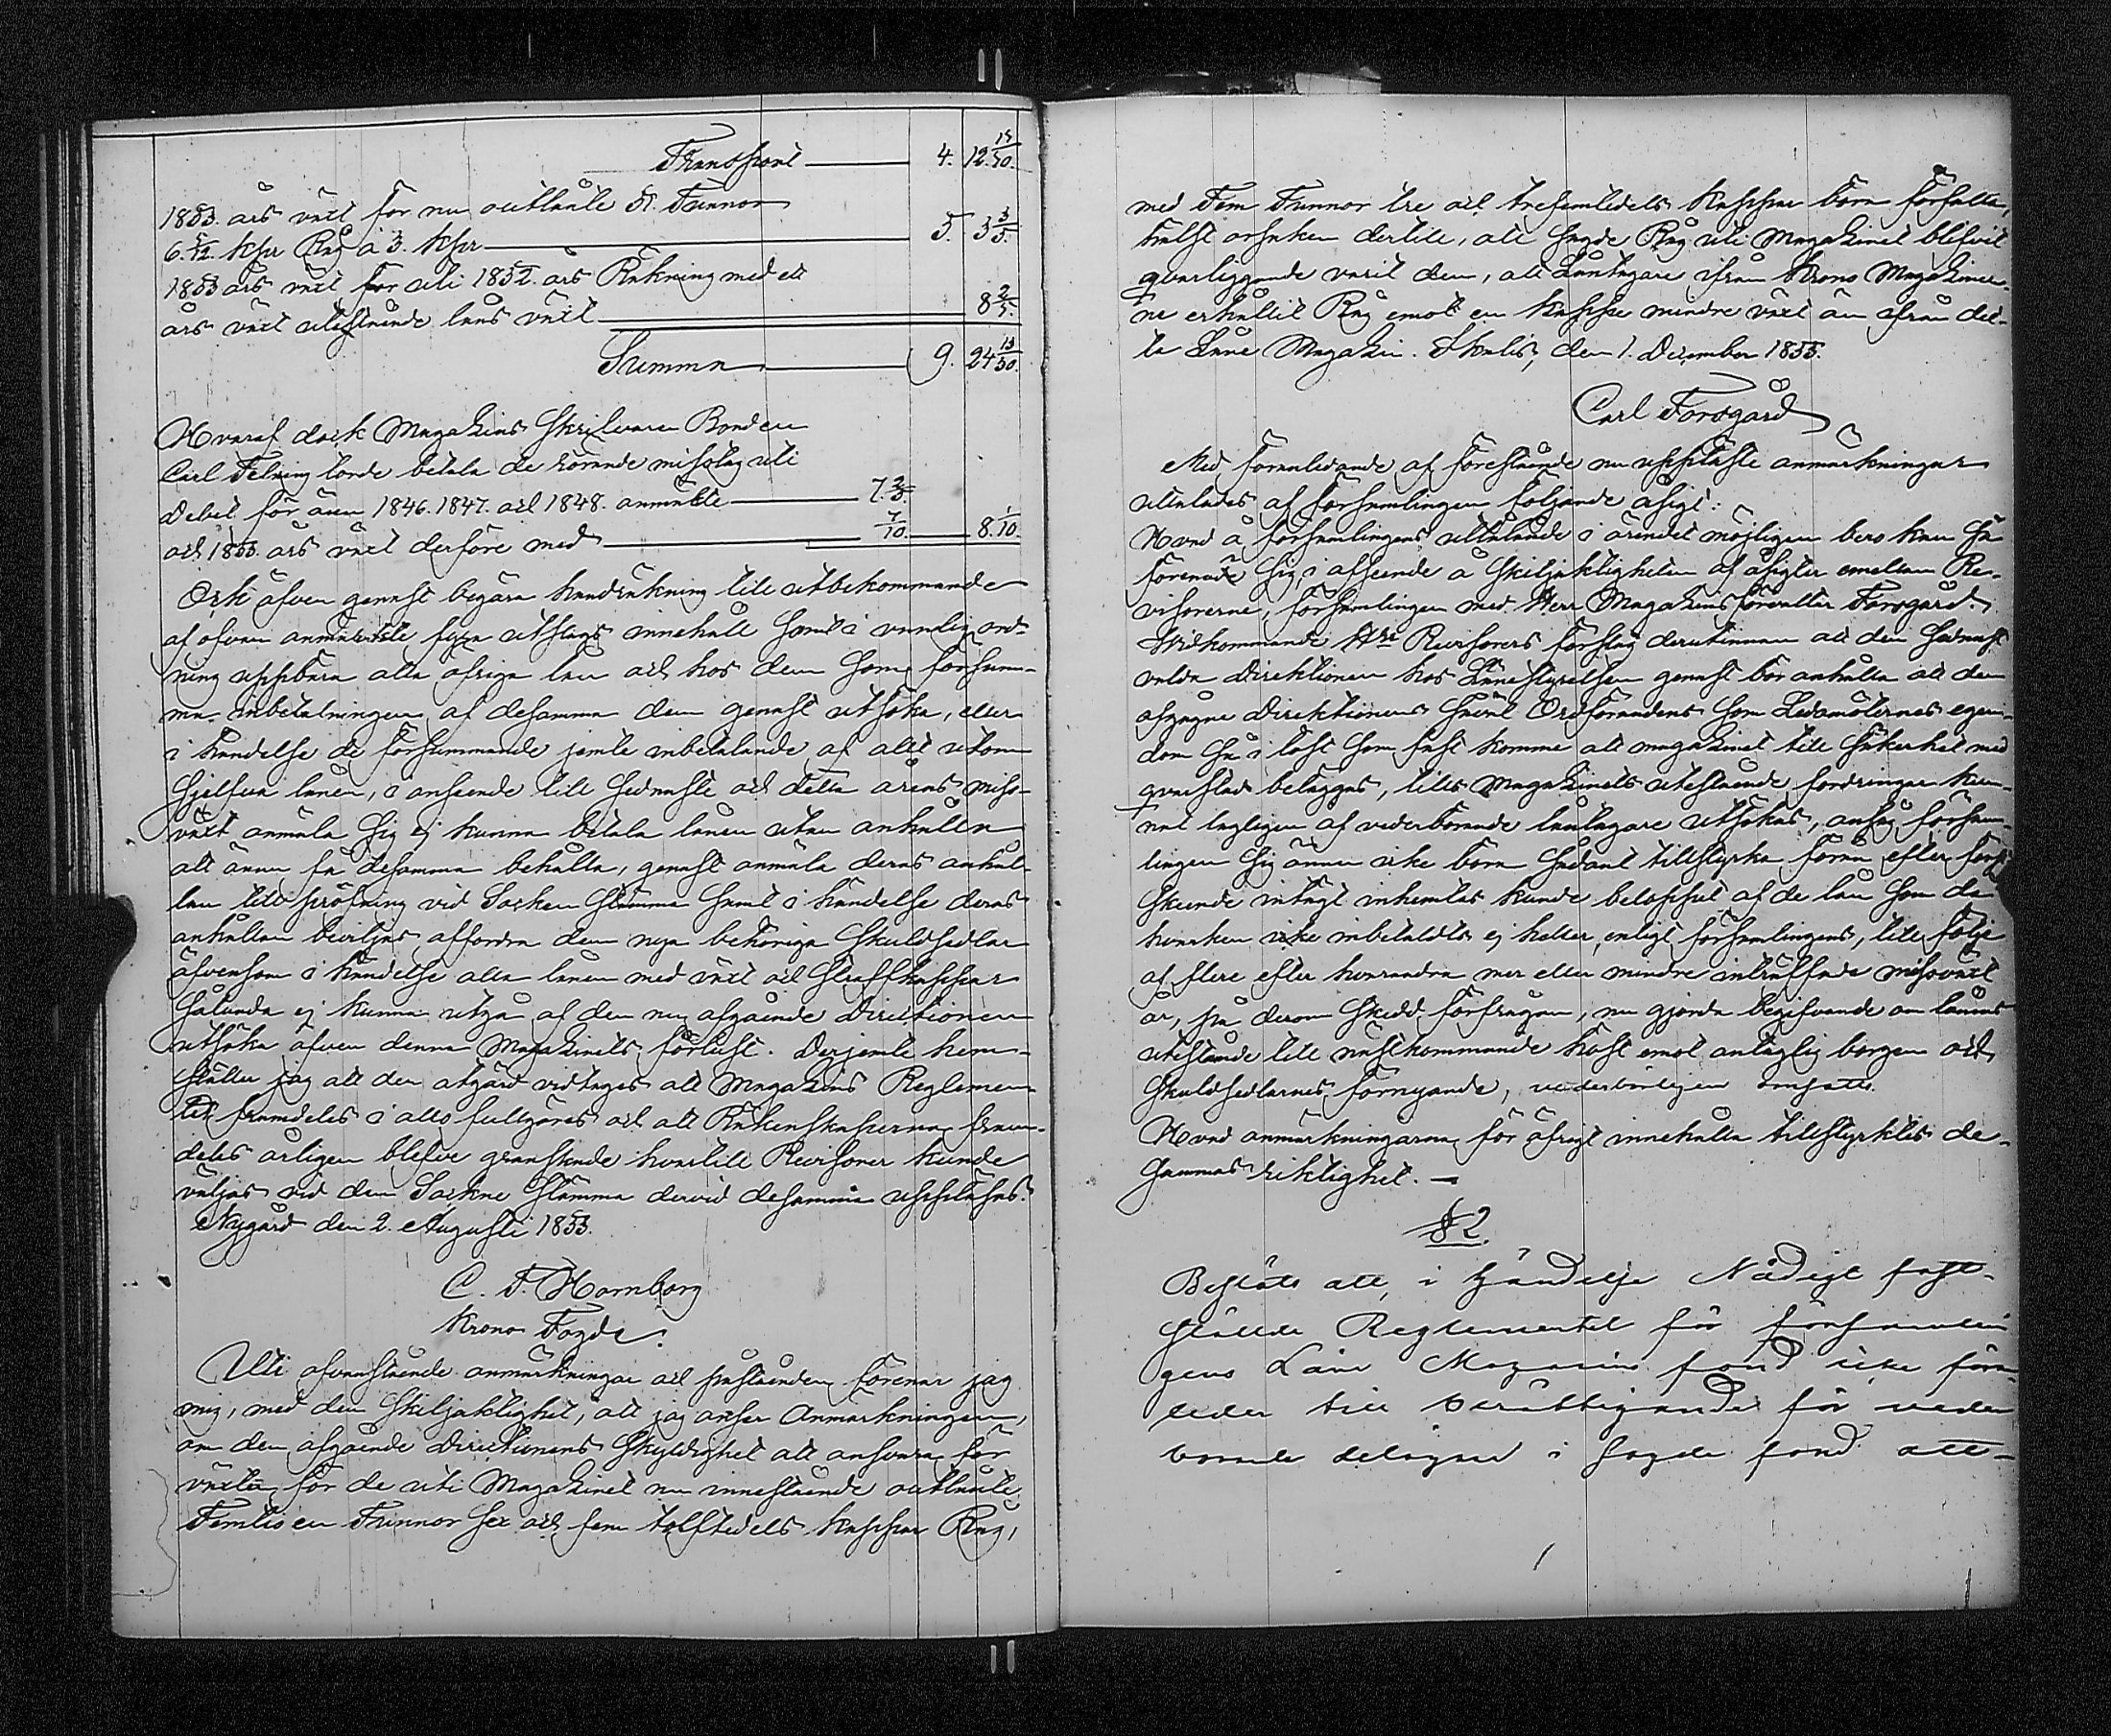 Transport 4. 12.19/30.
1853. års växt för nu outlånte 51. Tunnor
6.5/12. kpr Råg à 3. kpr 5. 3 3/5.
1853 års växt för uti 1852. års Räkning med ett
års växt utestående låns växt 8 2/5.
Summa 9. 24 19/30.
Hvaraf dock Magazins Skrifvaren Bonden
Carl Felning torde betala de rörande misstag uti
Debet för åren 1846. 1847. och 1848. anmälte 7 2/5
och 1853. års växt derföre med 7/10. 8.1/10.
Och äfven genast begära handräkning till utbekommande
af ofvan anmälte utslags innehåll samt i vanlig ord-
ning uppbära alla öfriga lån och hos dem som försum-
ma inbetalningen af desamma dem genast utsöka, eller
i händelse de försummande jemte inbetalande af allt utom
sjelfva lånen, i anseende till sednaste och detta årens miss-
växt anmäla sig ej kunna betala lånen utan anhålla
att ännu få desamma behålla, genast anmäla deras anhål-
lan till pröfning vid Socken Stämma samt i händelse deras
anhållan beviljas affordra dem nya behöriga Skuldsedlar
äfvensom i händelse alla lånen med växt och Straffkappar
sålunda ej kunna utgå af den nu afgående Directionen
utsöka äfven denna Magazinets förlust. Derjemte hem-
ställer jag att den åtgärd vidtages att Magazins Reglemen-
tet framdeles i allo fullgöres och att Räkenskaperna fram-
deles årligen blefve granskade hvartill Revisorer kunde
väljas vid den Sockne Stämma dervid desamma uppläses.
Nygård den 2. Augusti 1853.
C. F. Hornborg
Krono Fogde.
Uti ofvanstående anmärkningar och påståenden förenar jag
mig, med den Skiljaktighet, att jag anser Anmärkningen,
om den afgående Directionens Skyldighet att ansvara för
växten för de uti Magazinet nu innestående outlånte
Femtioen Tunnor Sex och fem tolftedels kappar Råg,
med Fem Tunnor tre och trefemtedels kappar böra förfalla,
hälst orsaken dertill, att sagde Råg uti Magazinet blifvit
qvarliggande varit den, att Låntagare ifrån Krono Magazinen-
ne erhållit Råg emot en kappe mindre växt än ifrån det-
ta Låne Magazin. den 1. December 1853.
Carl Forsgård
Med föranledande af förestående nu uppläste anmärkningar
uttalades af församlingen följande åsigt:
Hvad å församlingens uttalande i ärendet möjligen bero kan så
förenade sig, i afseende å Skiljaktigheten af åsigter emellan Re-
visorerne, församlingen med Herr Magazinsförvaltar Forsgård.
Vidkommande Hrr Revisorers förslag derutinnan att den sednast
valda Direktionen hos Länestyrelsen genast bör anhålla att den
afgågne Direktionens såväl Ordförandens som Ledamöternes egen-
dom så i löst som fast komme att magazinet till säkerhet med
qvarstad beläggas, tills Magazinets utestående fordringar kun-
nat lagligen af vederbörande låntagare utsökas, ansåg försam-
lingen sig ännu icke böra sådant tillstyrka förrän efter
skeende intägt inhemtas kunde beloppet af de lån som
hvarken icke inbetaldts ej heller, enligt församlingens, till följe
af flere efter hvarandra mer eller mindre inträffade missväxt
år, på derom skedd förfrågan, nu gjorda begifvande om lånens
utestående till nästkommande höst emot antaglig borgen och
Skuldsedlarnes förnyande, vederbörligen omsatts.
Hvad anmärkningarna för öfrigt innehålla tillstyrktes de-
sammas riktighet. —
§ 2.
Beslöts att, i händelse Nådigt fast-
ställda Reglementet för församlin
gens Låne Magasins fond icke föran-
leder till berättigande för veder
borande delägare i sagde fond att-